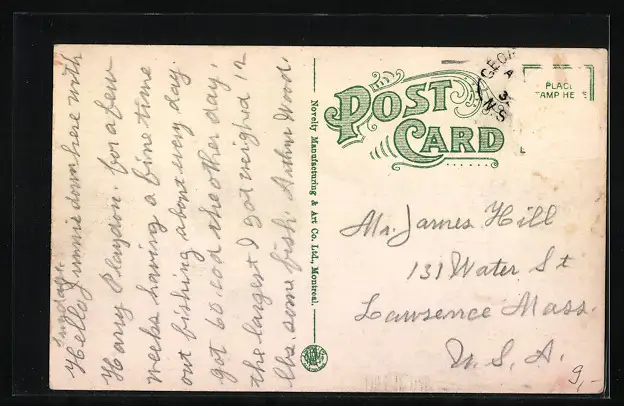 Sunday.
Hello Jimmie down here with
Harry Playdon. for a few
weeks having a fine time
out fishing about every day.
got 60. cod the other day.
the largest I got weighed 12
lbs. some fish. Arthur Wood.
Novelty Manufacturing & Art Co. Ltd., Montreal.
POST
CARD
PLACE
STAMP HERE
GEOR
A
N.S
Mr. James Hill
131 Water St
Lawsence Mass.
U. S. A.
9,-